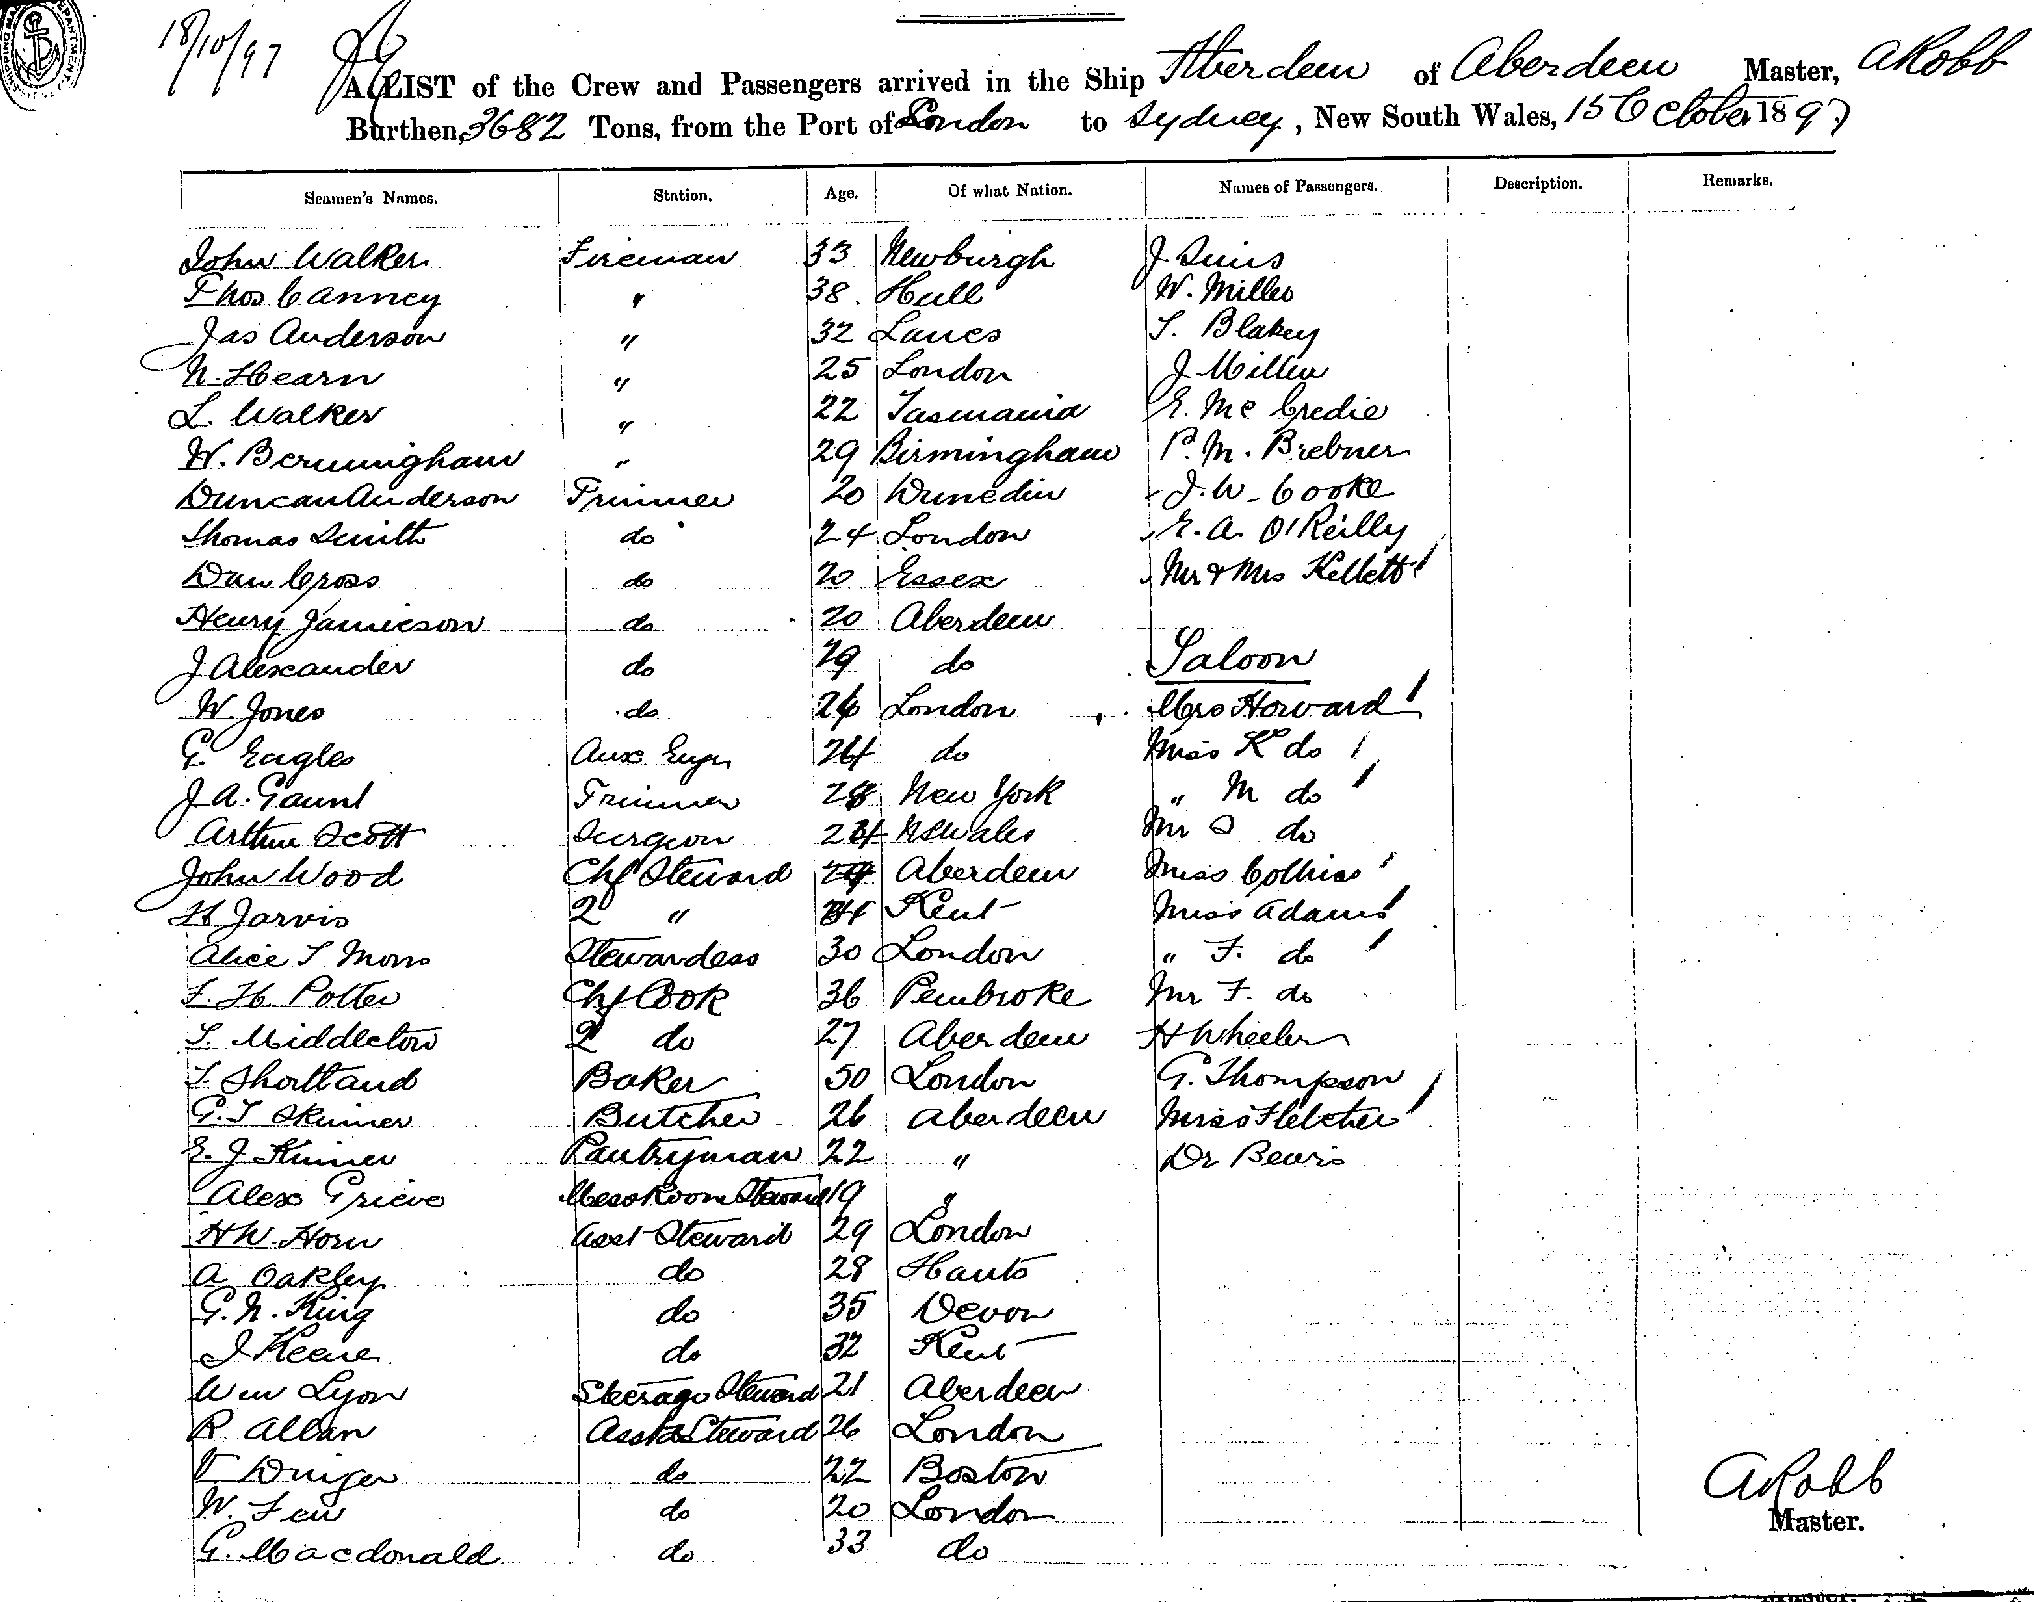 18/10/97
A LIST of the Crew and Passengers arrived in the Ship Aberdeen of Aberdeen Master, A Robb
Burthen, 3682 Tons, from the Port of London to Sydney, New South Wales, 15 October 1897
Seamen's Names. Station. Age. Of what Nation. Names of Passengers. Description. Remarks.
John Walker Fireman 33 Newburgh J Sims
Thos Canney " 38 Hull W. Miller
Jas Anderson " 32 Lancs T. Blakey
N. Hearn " 25 London J Miller
L. Walker " 22 Tasmania E. Mc Credie
W. Bermingham " 29 Birmingham P. M. Brebner
Duncan Anderson Trimmer 20 Dunedin J. W. Cooke
Thomas Smith do 24 London E. A. O'Reilly
Dan Cross do 20 Essex Mr & Mrs Kellett
Henry Jamieson do 20 Aberdeen
J Alexander do 29 do Saloon
W. Jones do London Mrs Howard
G. Eagles Aux Engr 24 do Miss K do
J A. Gaunt Trimmer New York " M do
Arthur Scott Surgeon NSWales Mr do
John Wood Chf Steward Aberdeen Miss Collins
H Jarvis 2 " Kent Miss Adams
Alice T Morris Stewardess 30 London " F. do
F. H. Potter Chf Cook 36 Pembroke Mr F. do
T. Middleton 2 do 27 Aberdeen H Wheeler
T. Shortland Baker 50 London G. Thompson
G. T Skinner Butcher 26 Aberdeen Miss Fletcher
E. J. Skinner Pantryman 22 " Dr Bevis
Alex Grieve Messroom Steward 19 "
H W. Horn Asst Steward 29 London
A Oakley do 28 Hants
G. N. King do 35 Devon
J Keene do 32 Kent
Wm Lyon Steerage Steward 21 Aberdeen
R Allan Asst Steward 26 London
do 22 Boston
W. Few do 20 London
G. Macdonald do 33 do
A Robb
Master.